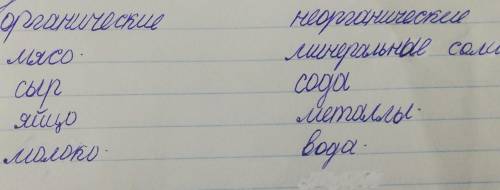 органические неорганические
мясо. минеральные соли
сыр сода
яйцо металлы.
молоко. вода.